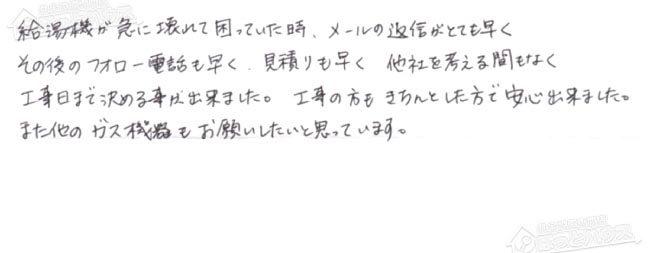 給湯機が急に壊れて困っていた時、メールの返信がとても早く
その後のフォロー電話も早く、見積りも早く 他社を考える間もなく
工事日まで決める事が出来ました。 工事の方も きちんとした方で安心出来ました。
また他の ガス機器も お願いしたいと思っています。